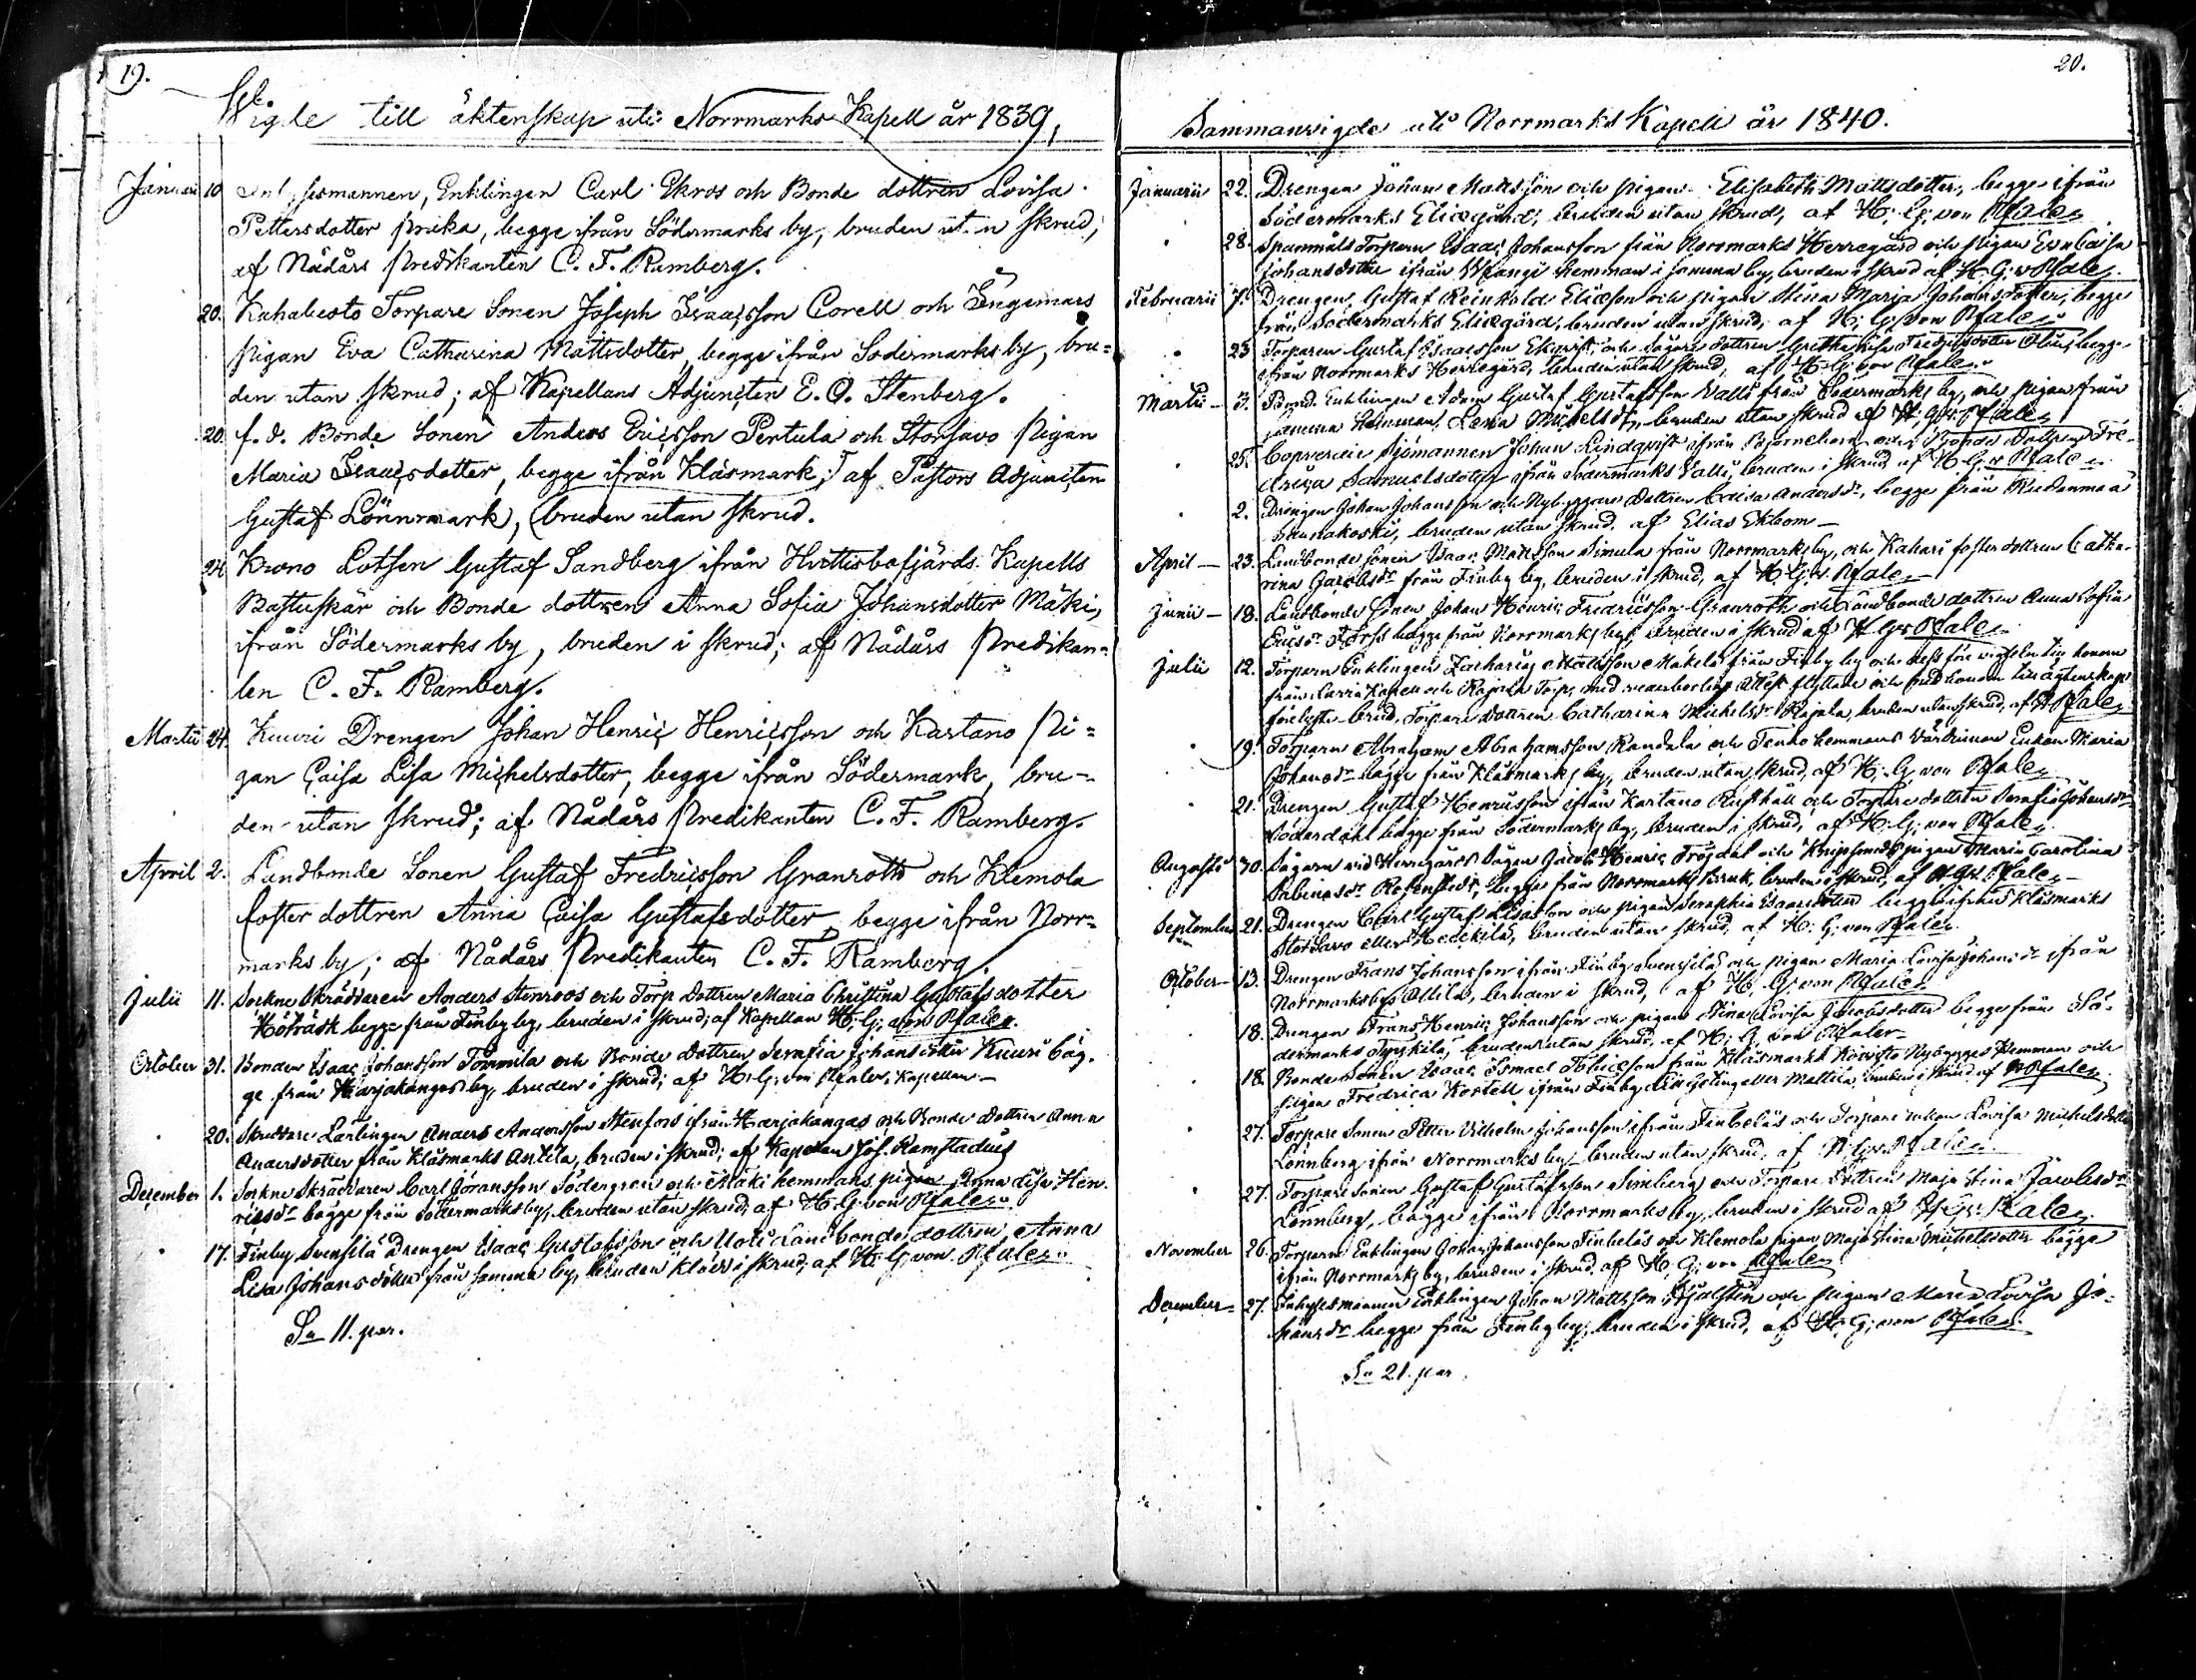 19.
Wigde till äktenskap uti Norrmarks Kapell år 1839,
Januarii 10. Inhysesmannen, Enklingen Carl Ekros och Bonde dottren Lovisa
Pettersdotter Prika, begge ifrån Södermarks by, bruden utan skrud;
af Nådårs Predikanten C. F. Ramberg.
20. Kahaluoto Torpare Sonen Joseph Isaacsson Corell och Ingemars
pigan Eva Catharina Mattsdotter, begge ifrån Södermarks by, bru=
den utan skrud; af Kapellans Adjuncten E. O. Stenberg.
20. f. d. Bonde Sonen Anders Ericsson Pertula och Storsavo Pigan
Maria Isaacsdotter, begge ifrån Klåsmark; af Pastors Adjuncten
Gustaf Lönnmark, bruden utan skrud.
24. Krono Lotsen Gustaf Sandberg ifrån Hvittisbofjärds Kapells
Bastuskär och Bonde dottren Anna Sofia Johansdotter Mäki,
ifrån Södermarks by, bruden i skrud; af Nådårs Predikan=
ten C. F. Ramberg.
Martii 24. Kuuri Drengen Johan Henric Henricsson och Kartano Pi=
gan Caisa Lisa Michelsdotter, begge ifrån Södermark, bru=
den utan skrud; af Nådårs Predikanten C. F. Ramberg.
April 2. Landbonde Sonen Gustaf Fredricsson Granroth och Klemola
foster dottren Anna Caisa Gustafsdotter, begge ifrån Norr=
marks by; af Nådårs Predikanten C. F. Ramberg.
Julii 11. Sockne Skräddaren Anders Stenroos och Torp dottren Maria Christina Gustafsdotter
Höträsk begge från Finby by, bruden i skrud; af Kapellan H. G. von Pfaler.
October 31. Bonden Isaac Johansson Tommila och Bonde dottren Serafia Johansdotter Kuuri bäg.
ge från Harjakangas by, bruden i skrud; af H. G. von Pfaler, Kapellan
20. Skräddare Lärlingen Anders Andersson Stenfors ifrån Harjakangas och Bonde dottren Anna
Andersdotter från Klåsmarks Antila, bruden i skrud; af Kapellan Jos. Ramstadius
December 1. Sockne Skräddaren Carl Göransson Södergren och Mäki hemmans pigan Anna Lisa Hen.
ricsdr begge från Södermarks by, bruden utan skrud, af H. G. von Pfaler
17. Finby Svensilä Drengen Isaac Gustafsson och Uoti Landbonde dottren Anna
Lisa Johansdotter från samma by, bruden klädd i skrud, af H. G. von Pfaler
Sa 11. par.
20.
Sammanvigde uti Norrmarks Kapell år 1840.
Januarii 22. Drengen Johan Mattsson och pigan Elisabeth Mattsdotter, begge ifrån
Södermarks Elicegård, bruden utan skrud, af H. G. von Pfaler
28. Spannmåls Torparn Isaac Johansson från Norrmarks Herregård och pigan Eva Caisa
Johansdotter ifrån hemman i samma by, bruden i skrud af H. G. v. Pfaler.
Februarii 7. Drengen Gustaf Reinhold Elicson och pigan Stina Maria Johansdotter, begge
från Södermarks Elicegård, bruden utan skrud, af H. G. von Pfaler
23. Torparen Gustaf Isaacsson Ekqvist, och Sågare dottren Greta Lisa Fredricsdotter begge
ifrån Norrmarks Herregård, bruden utan skrud, af H. G. von Pfaler
Martii 3. Bond. Enklingen Adam Gustaf Gustafsson Valli från Södermarks by, och pigan från
samma hemman, Lena Michelsdr, bruden utan skrud af H. G. v. Pfaler
25. Copverdie Sjömannen Johan Lindqvist ifrån Björneborg och Bonde dottren Fre-
drica Samuelsdotter ifrån Södermarks Valli, bruden i skrud af H. G. v. Pfaler
2. Drengen Johan Johansson och Nybyggare dottren Caisa Andersdr, begge från
bruden utan skrud. af Elias Ekbom
April 23. Landbonde sonen Isaac Mattsson Simula från Norrmarks by, och Kahari foster dottren Catha-
rina Jacobsdr från Finby by, bruden i skrud, af H. G. v. Pfaler
Junii 18. Landbonde Sonen Johan Henric Fredricsson Granroth och Landbonde dottren Anna Sofia
Ericsdr Forss begge från Norrmarks by, bruden i skrud af H. G. v. Pfaler
Julii 12. Torparn Enklingen Zacharias Mattsson Mäkelä från Finby by och dess före vigseln till honom
från Kapell och Rajala Torp, med attest flyttade och med honom till ägtenskap
förelyste brud, Torpare dottren Catharina Michelsdr Rajala, bruden utan skrud, af H. Pfaler
19. Torparn Abraham Abrahamsson Randala och Tenho hemmans Värdinnan Enkan Maria
Johansdr bägge från Klåsmarks by, bruden utan skrud, af H. G. von Pfaler
21. Drengen Gustaf Henricsson ifrån Kartano Rusthåll och Torpare dottren Serafia Johansdr
Söderdahl bägge från Södermarks by, bruden i skrud, af H. G. von Pfaler
Augusti 30. Sågaren vid Herregårds Sågen Jacob Henric Fröjdal och Knipsmeds pigan Maria Carolina
Sabinasdr Rosenstedt, begge från Norrmarks Bruk, bruden i skrud, af H. G. v. Pfaler
September 21. Drengen Carl Gustaf Lisasson och pigan Seraphia Isaacsdotter begge ifrån Klåsmarks
Storsavo eller Heickilä, bruden utan skrud, af H. G. von Pfaler
October 13. Drengen Frans Johansson ifrån Finby Svensilä och pigan Maria Lovisa Johansdr ifrån
Norrmarks bys Attila, bruden i skrud, af H. G. von Pfaler
18. Drengen Frans Henric Johansson och pigan Stina Lovisa Jacobsdotter begge från Sö-
dermarks bruden utan skrud, af H. G. von Pfaler
18. Bonde Sonen Isaac Ismael Thomasson från Klåsmarks Koivisto Nybygges Hemman och
pigan Fredrica Kostell ifrån Finby eller Mattila, bruden i skrud af v. Pfaler
27. Torpare Sonen Petter Vilhelm Johansson ifrån Finbeläs och Torpare enkan Lovisa Michelsdotter
Lönnberg ifrån Norrmarks by bruden utan skrud, af H. G. v. Pfaler
27. Torpare Sonen Gustaf Gustafsson Simberg och Torpare dottren Maja Stina Jacobsdr
Lönnberg, bägge ifrån Norrmarks by, bruden i skrud af H. G. v. Pfaler
November 26. Torparn Enklingen Johan Johansson Finbeläs och Klemola pigan Maja Stina Michelsdotter bägge
ifrån Norrmarks by, bruden i skrud, af H. G. von Pfaler
December 27. Inhysesmannen Enklingen Johan Mattsson Hjulstin och pigan Maria Lovisa Jo-
hansdr begge från Finby by, bruden i skrud, af H. G. von Pfaler
Sa 21. par